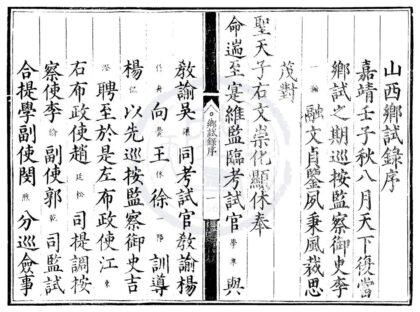 山西鄉試錄序
嘉靖壬子秋八月天下復當
鄉試之期巡按監察御史李
融文肖鑒夙秉風裁思
茂對
聖天子右文崇化顯休奉
命遄至寔維監臨考試官學準與
鄉試錄序 一
教諭吳同考試官教諭楊
向王休徐訓導
楊侃以先巡按監察御史吉
澄聘至於是左布政使江東
右布政使趙廷松司提調按
察使李副使郭乾司監試
合提學副使閔煦分巡僉事